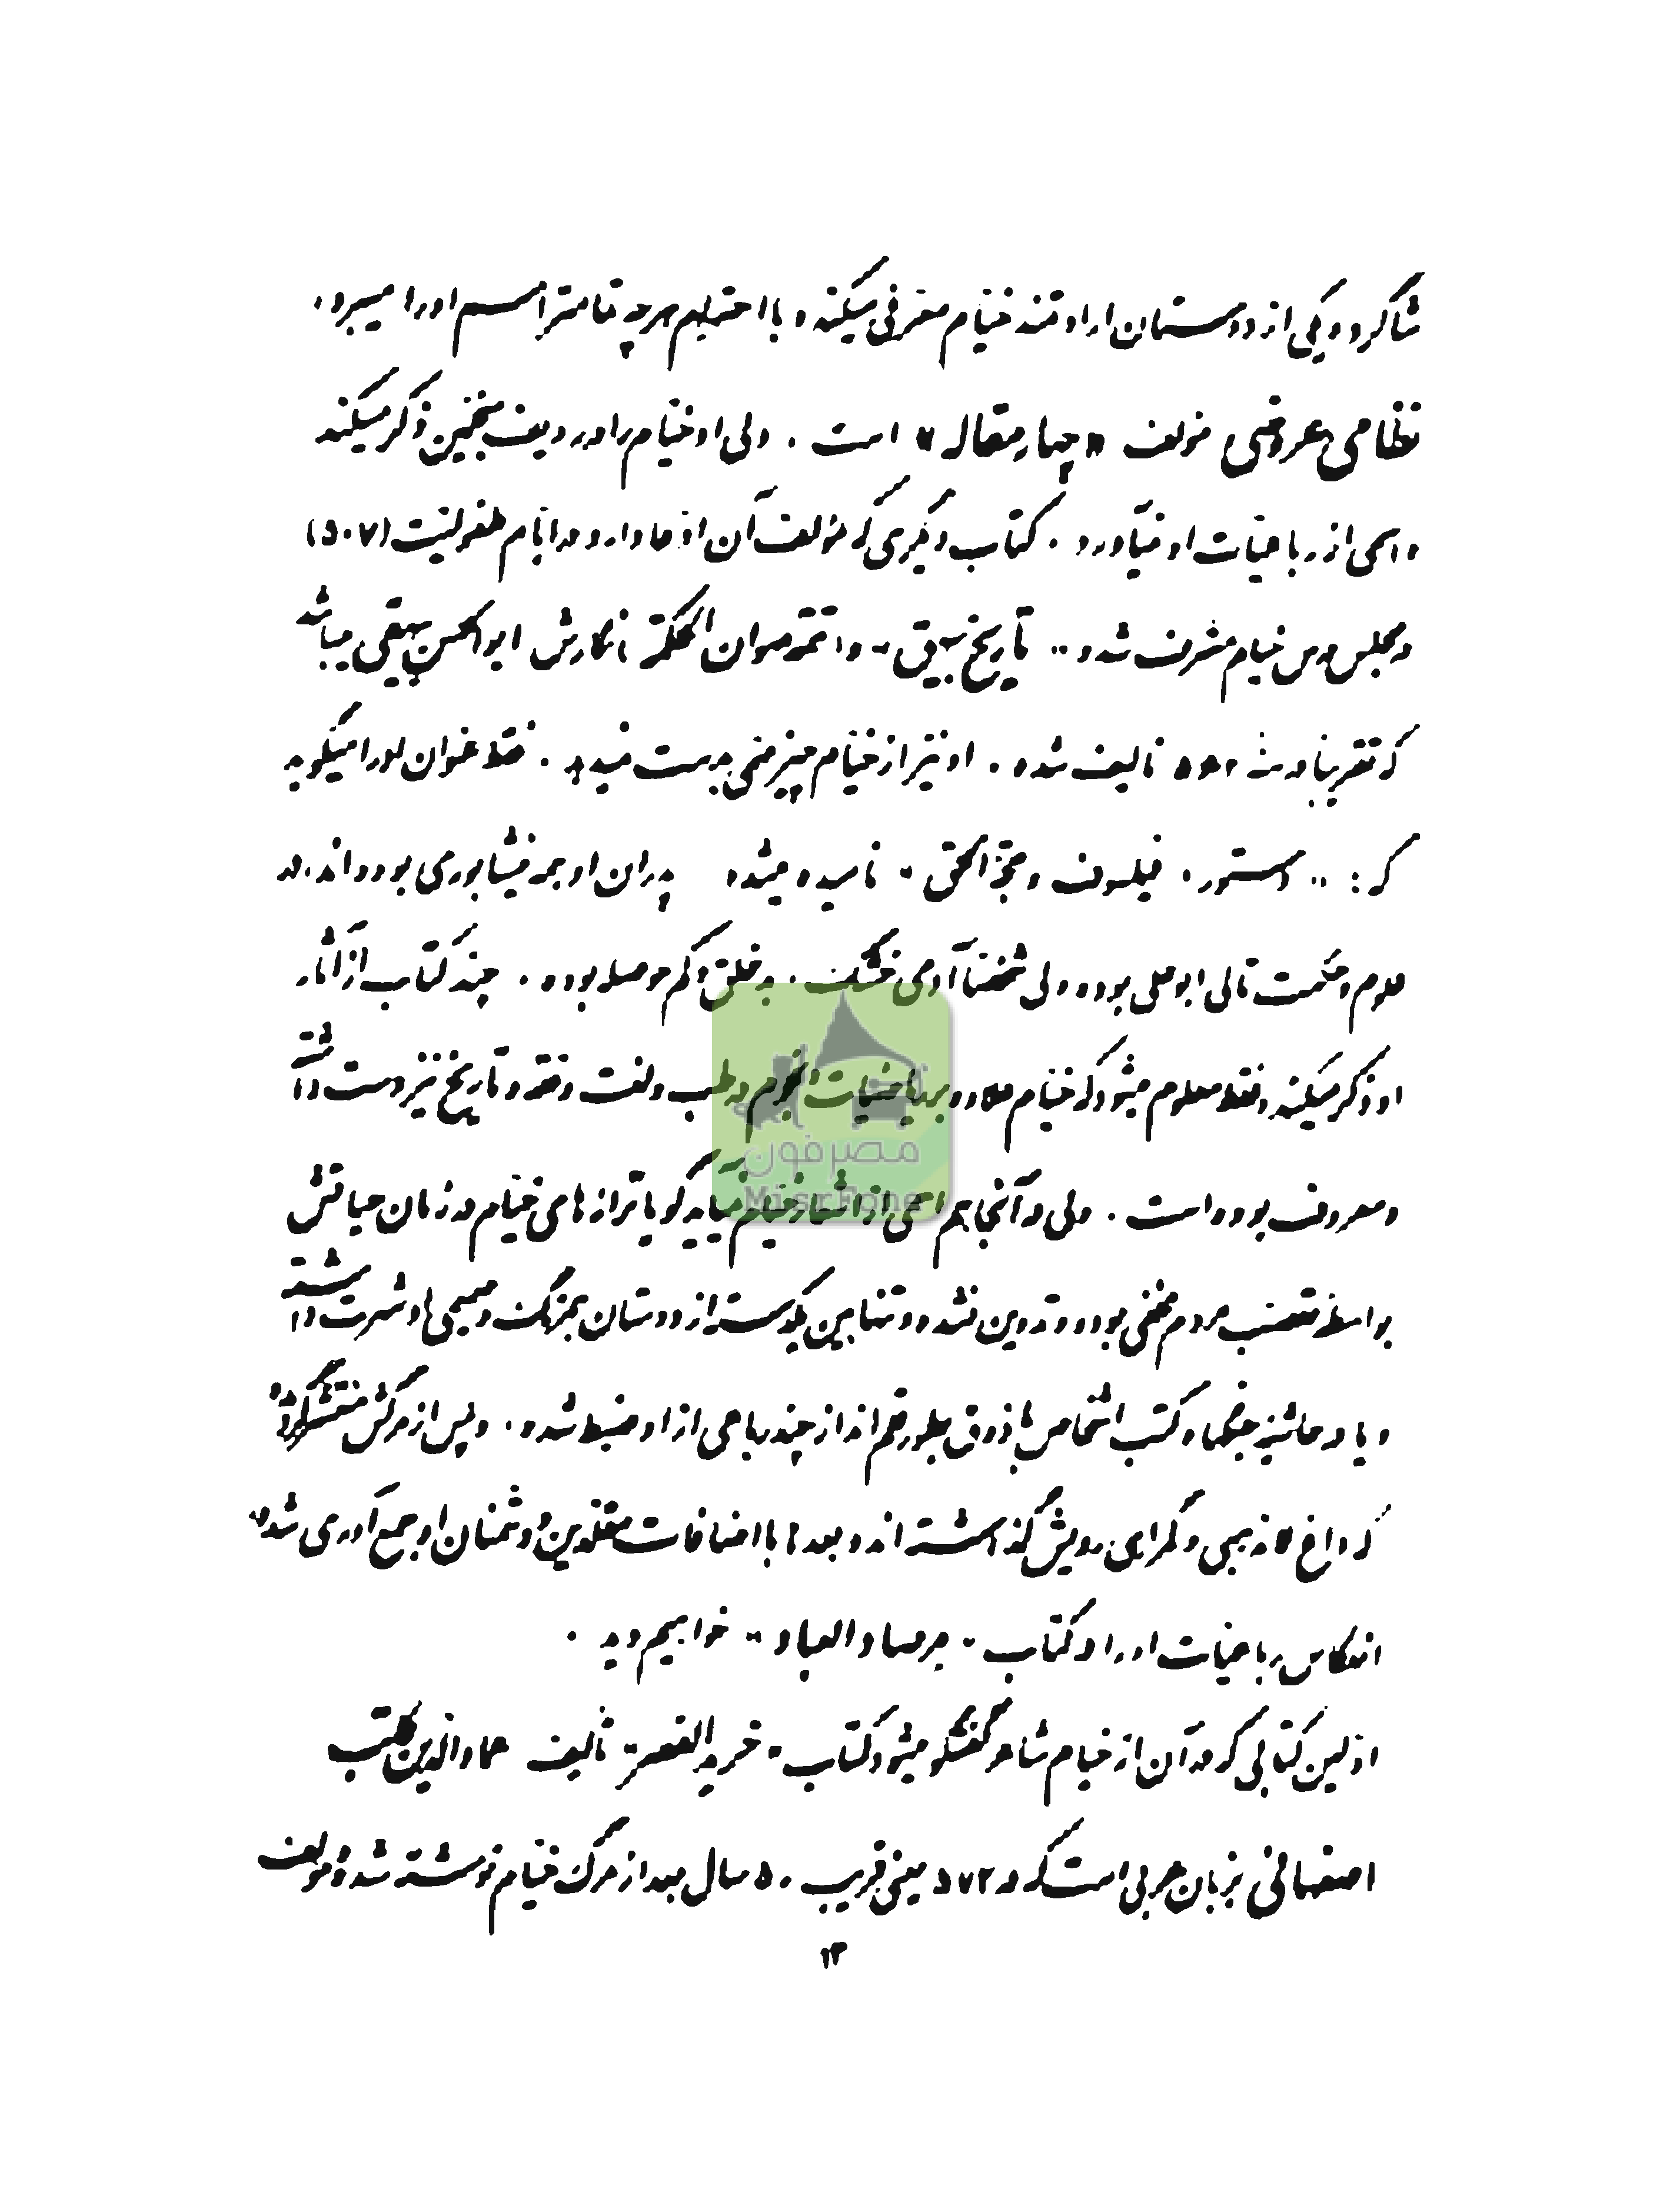 شاگرد و یکی از دوستان ارادتمند خیام معرفی میکند و با احترام هرچه تمامتر اسم او را میبرد،
نظامی عروضی مولف «چهار مقاله» است. ولی او خیام را در ردیف منجمین ذکر میکند
و اسمی از رباعیات او نمیآورد. کتاب دیگری که مؤلف آن ادعا دارد در ایام طفولیت (۵۰۷)
در مجلس درس خیام مشرف شده «تاریخ بیهقی» و «تتمه صوان الحکمة» نگارش ابوالحسن بیهقی میباشد
که تقریبا در سنه ۵۶۲ تالیف شده. او نیز از خیام چیز مهمی بدست نمیدهد. فقط عنوان او را میگوید
که: «دستور، فیلسوف و حجة الحق» نامیده میشده پدران او همه نیشابوری بوده‌اند، در
علوم و حکمت تالی ابوعلی بوده ولی شخصا آدمی خشک، بدخلق و کم حوصله بوده. چند کتاب از آثار
او ذکر میکند و فقط معلوم میشود که خیام علاوه بر ریاضیات و نجوم در طب و لغت و فقه و تاریخ نیز دست داشته
و معروف بوده است. ولی در آنجا هم اسمی از اشعار خیام نمیآید گویا ترانه‌های خیام در زمان حیاتش
بواسطه تعصب مردم مخفی بوده و تدوین نشده و تنها بین یکدسته از دوستان همرنگ و صمیمی او شهرت داشته
و یا در حاشیه جنگها و کتب اشخاص باذوق بطور قلم انداز چند رباعی از او ضبط شده. و پس از مرگش منتشر گردیده
که داغ لامذهبی و گمراهی رویش گذاشته‌اند و بعدها با اضافات مقلدین و دشمنان او جمع‌آوری شده
انعکاس رباعیات او را در کتاب «مرصاد العباد» خواهیم دید.
اولین کتابی که در آن از خیام شاعر گفتگو میشود کتاب «خریدة القصر» تألیف عمادالدین کاتب
اصفهانی بزبان عربی است که در ۵۷۲ یعنی قریب ۵۰ سال بعد از مرگ خیام نوشته شده و مولف
۱۳
مصرفون
MisrFone